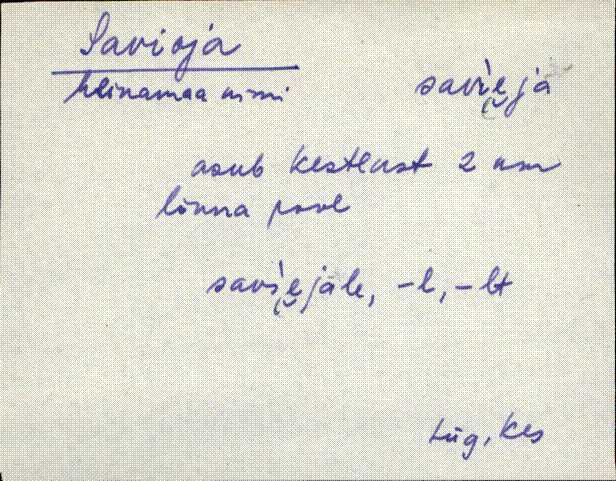 Savioja
heinamaa nimi
savi̬e̬jä
asub Kestlast 2 km
lõuna pool
savi̬e̬jäle, -l, -lt
Lüg, Kes